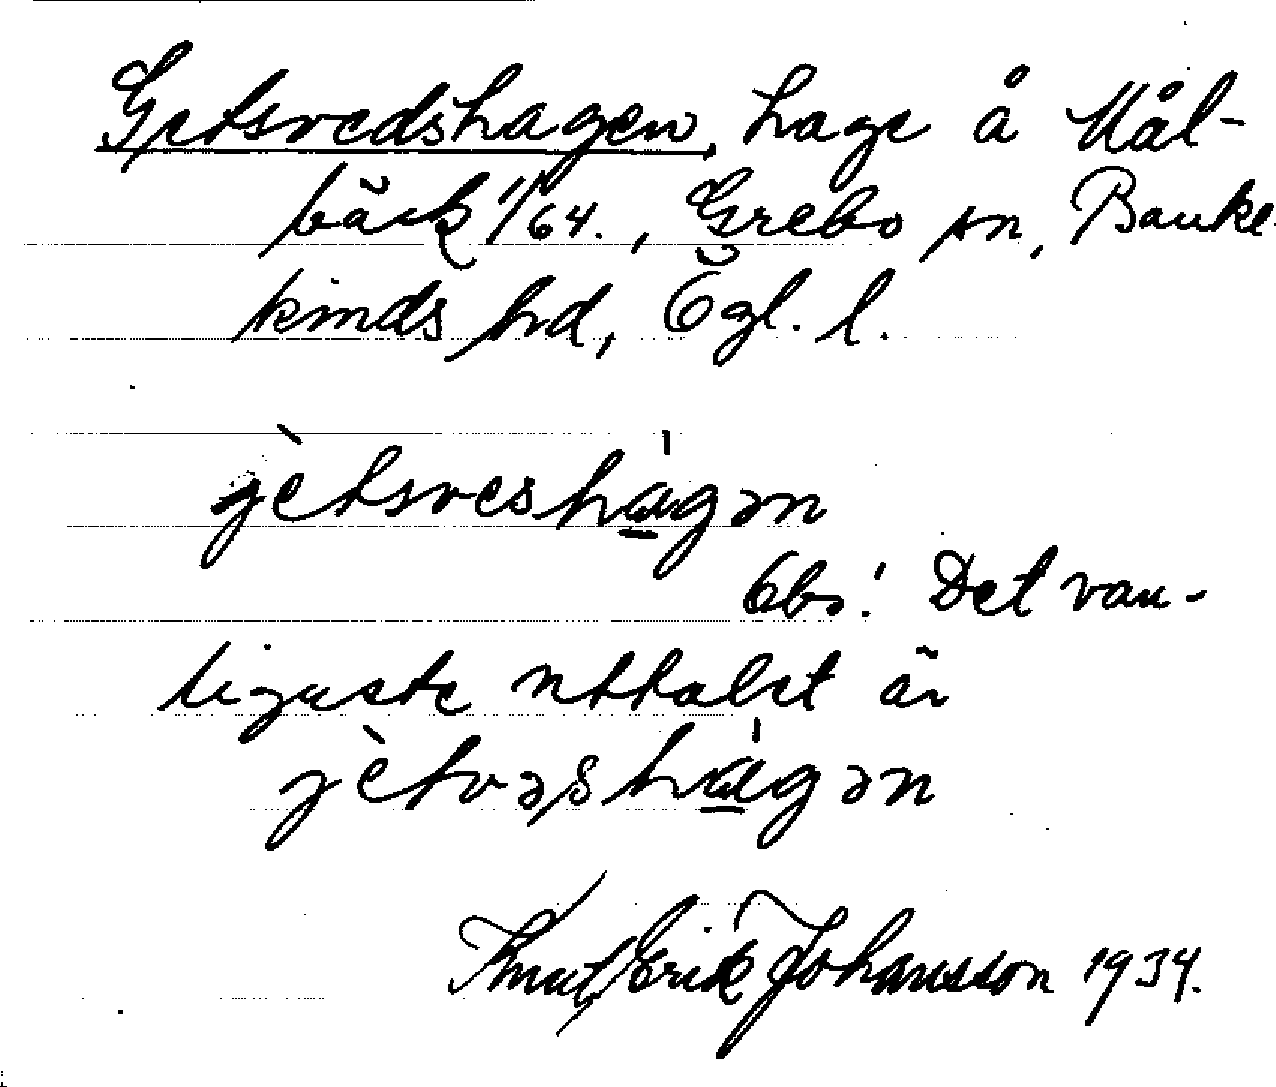 Getsvedshagen, hage å Mål-
bäck 1/64., Grebo sn, Banke
kinds hd, Ögl. l.
jètsveshàgən
Obs! Det van-
ligaste uttalet är
jètvəshàgən
Knut Erik Johansson 1934.